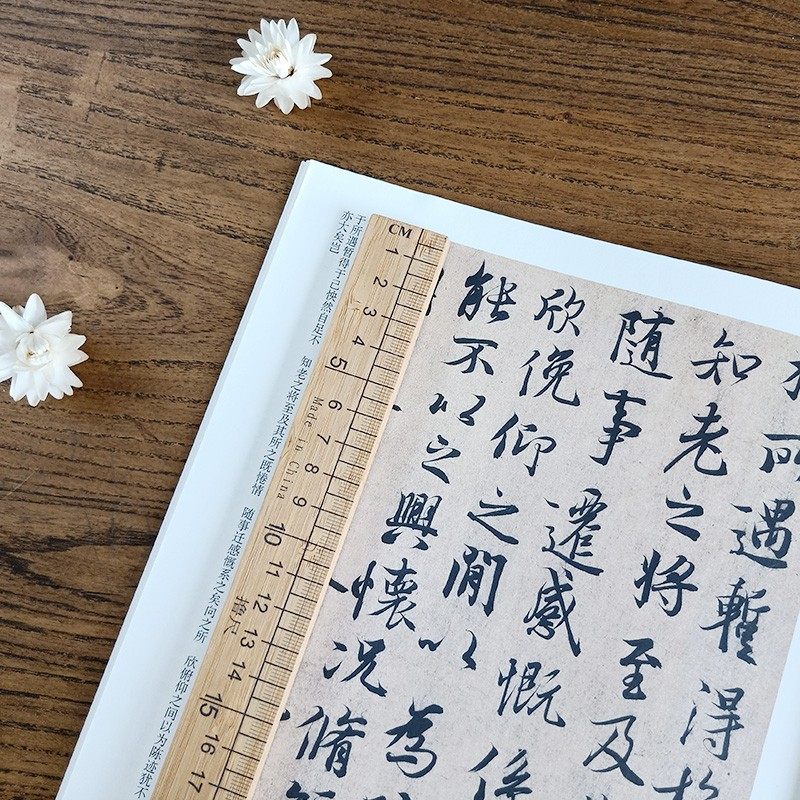 所遇暫得
知老之將至及
隨事遷感慨係
欣俛仰之閒以為
能不以之興懷況脩
CM
1 2 3 4 5 6 7 8 9 10 11 12 13 14 15 16 17
Made in China
于所遇暂得于己怏然自足不 知老之将至及其所之既惓情 随事迁感慨系之矣向之所 欣俯仰之间以为陈迹犹不
亦大矣岂